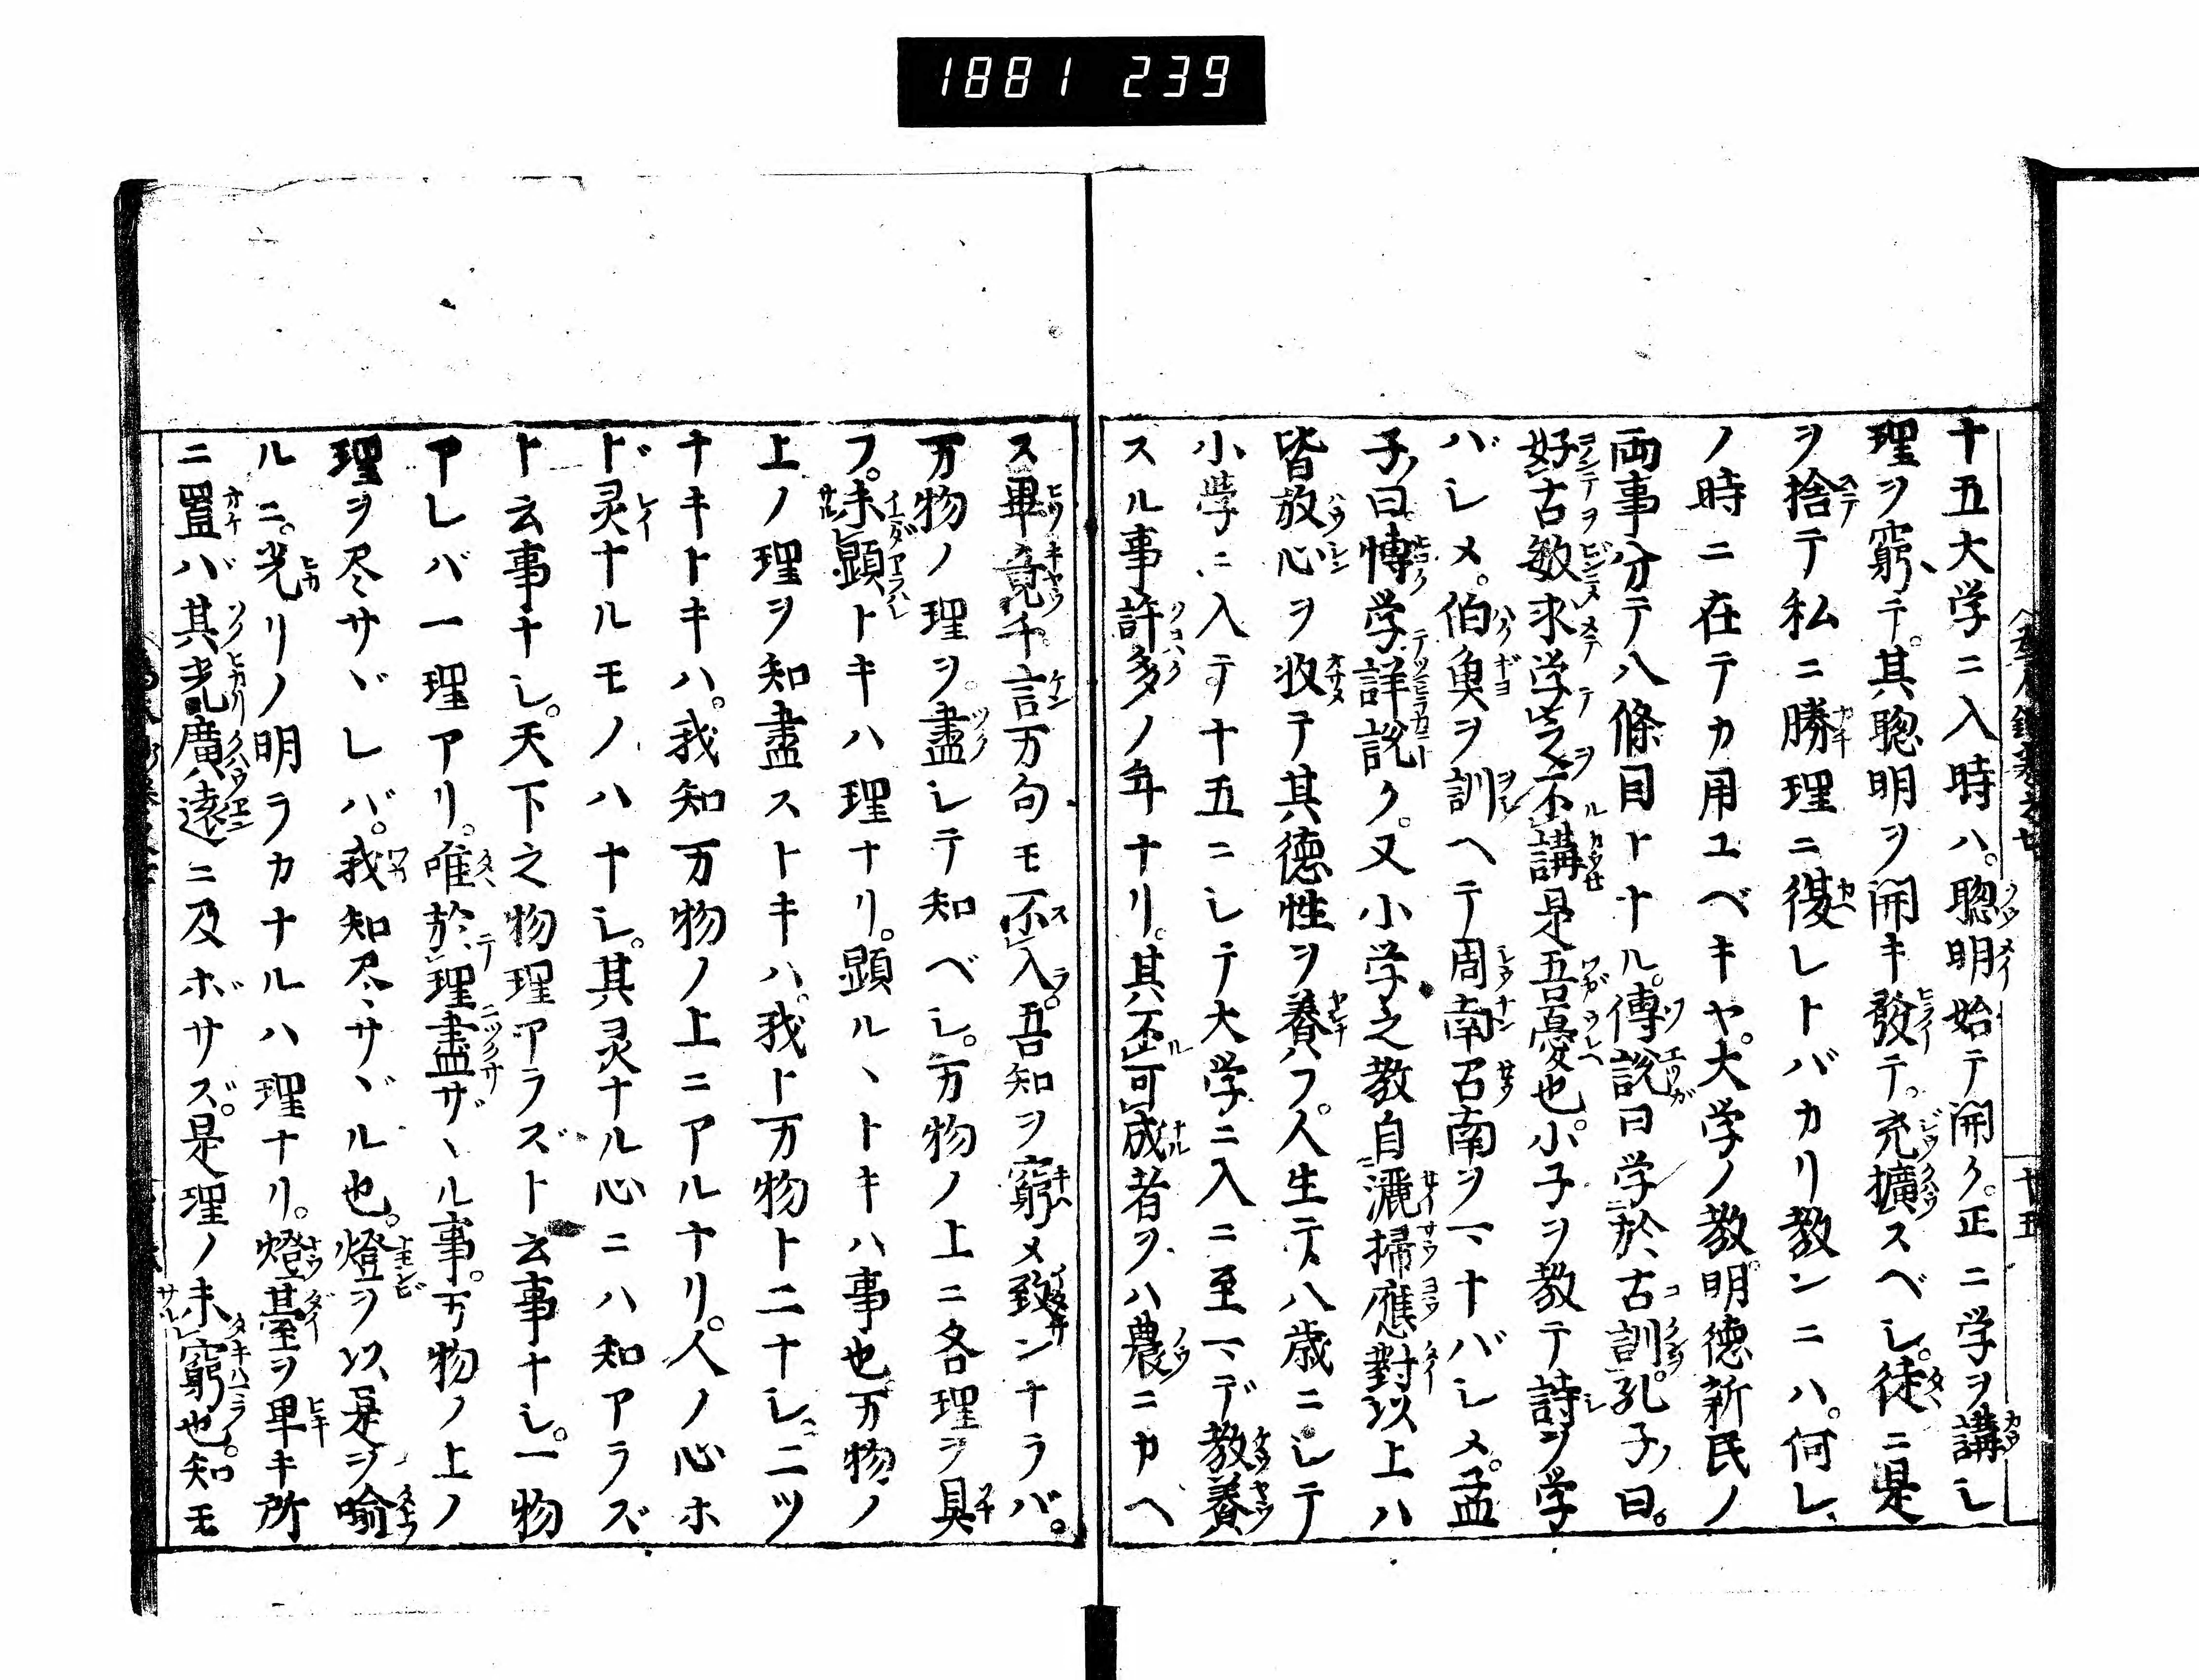 1881 239
十五大学ニ入時ハ。聰明始テ開ク。正ニ学ヲ講シ
理ヲ窮テ。其聰明ヲ開キ發テ。充擴スベシ。徒ニ是
ヲ捨テ私ニ勝理ニ復レトバカリ教ンニハ。何レ
ノ時ニ在テカ用ユベキヤ。大学ノ教明徳新民ノ
両事分テ八條目トナル。傳説曰学於古訓。孔子曰。
好古敏求学之不講是吾憂也。小子ヲ教テ詩ヲ学
バシメ。伯魚ヲ訓ヘテ周南召南ヲマナバシメ。孟
子曰博学詳説ク。又小学之教自灑掃應對以上ハ
皆放心ヲ收テ其徳性ヲ養フ。人生テ八歳ニシテ
小學ニ入テ十五ニシテ大学ニ入ニ至マデ教養
スル事許多ノ年ナリ。其不可成者ヲハ農ニカヘ
ス畢竟千言万句モ不入。吾知ヲ窮メ致ンナラバ。
万物ノ理ヲ盡シテ知ベシ。万物ノ上ニ各理ヲ具
フ。未顕トキハ理ナリ。顕ルヽトキハ事也万物ノ
上ノ理ヲ知盡ストキハ。我ト万物ト二ナシ。二ツ
ナキトキハ。我知万物ノ上ニアルナリ。人ノ心ホ
ド灵ナルモノハナシ。其灵ナル心ニハ知アラズ
ト云事ナシ。天下之物理アラズト云事ナシ。一物
アレバ一理アリ。唯於理盡ザヽル事。万物ノ上ノ
理ヲ尽サヾレバ。我知尽サヾル也。燈ヲ以是ヲ喻
ルニ。光リノ明ラカナルハ理ナリ。燈臺ヲ卑キ所
ニ置バ其光廣遠ニ及ボサズ。是理ノ未窮也。知モ
十五